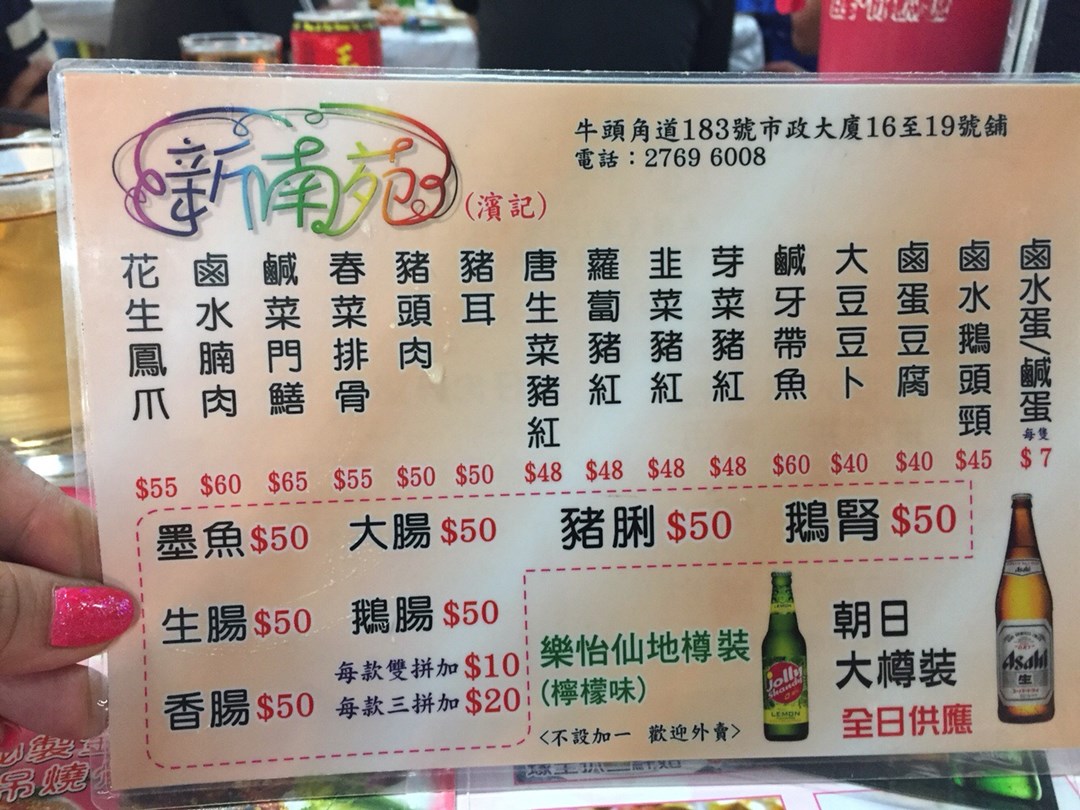 新南苑
(濱記)
牛頭角道183號市政大廈16至19號舖
電話：2769 6008
花生鳳爪 $55
鹵水腩肉 $60
鹹菜門鱔 $65
春菜排骨 $55
豬頭肉 $50
豬耳 $50
唐生菜豬紅 $48
蘿蔔豬紅 $48
韭菜豬紅 $48
芽菜豬紅 $48
鹹牙帶魚 $60
大豆豆卜 $40
鹵蛋豆腐 $40
鹵水鵝頭頸 $45
鹵水蛋/鹹蛋 每隻 $7
墨魚 $50
大腸 $50
豬脷 $50
鵝腎 $50
生腸 $50
鵝腸 $50
香腸 $50
每款雙拼加 $10
每款三拼加 $20
樂怡仙地樽裝
(檸檬味)
jolly
shandy
LEMON
朝日
大樽裝
全日供應
Asahi
生
<不設加一 歡迎外賣>